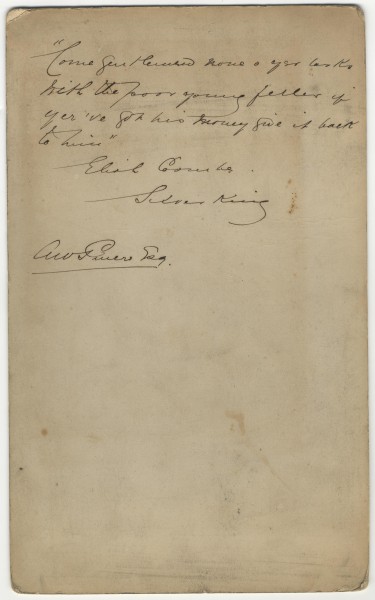 "Come gentlemen none o yer larks
with the poor young feller if
yer've got his money give it back
to him"
Eliah Coombe.
Silver King
AW Pinero Esq.